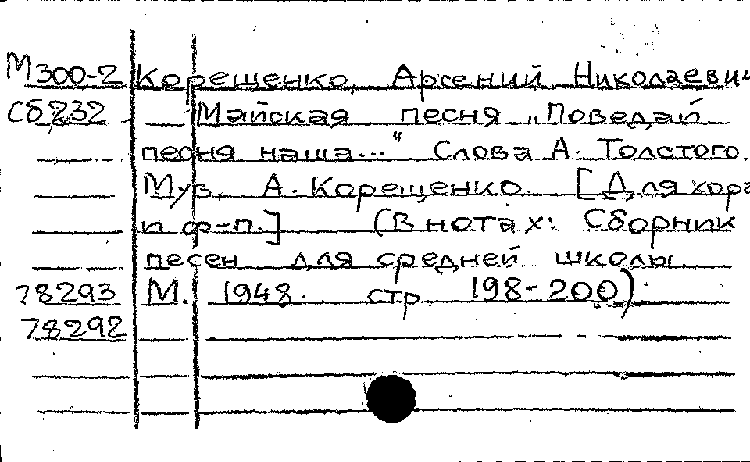 М300-2 Корещенко, Арсений Николаевич
Сб232 Майская песня „Поведай
песня наша..." Слова А. Толстого.
Муз. А. Корещенко. [Для хора
и ф-п.] (В нотах: Сборник
песен для средней школы.
78293 М. 1948. стр. 198-200).
78292